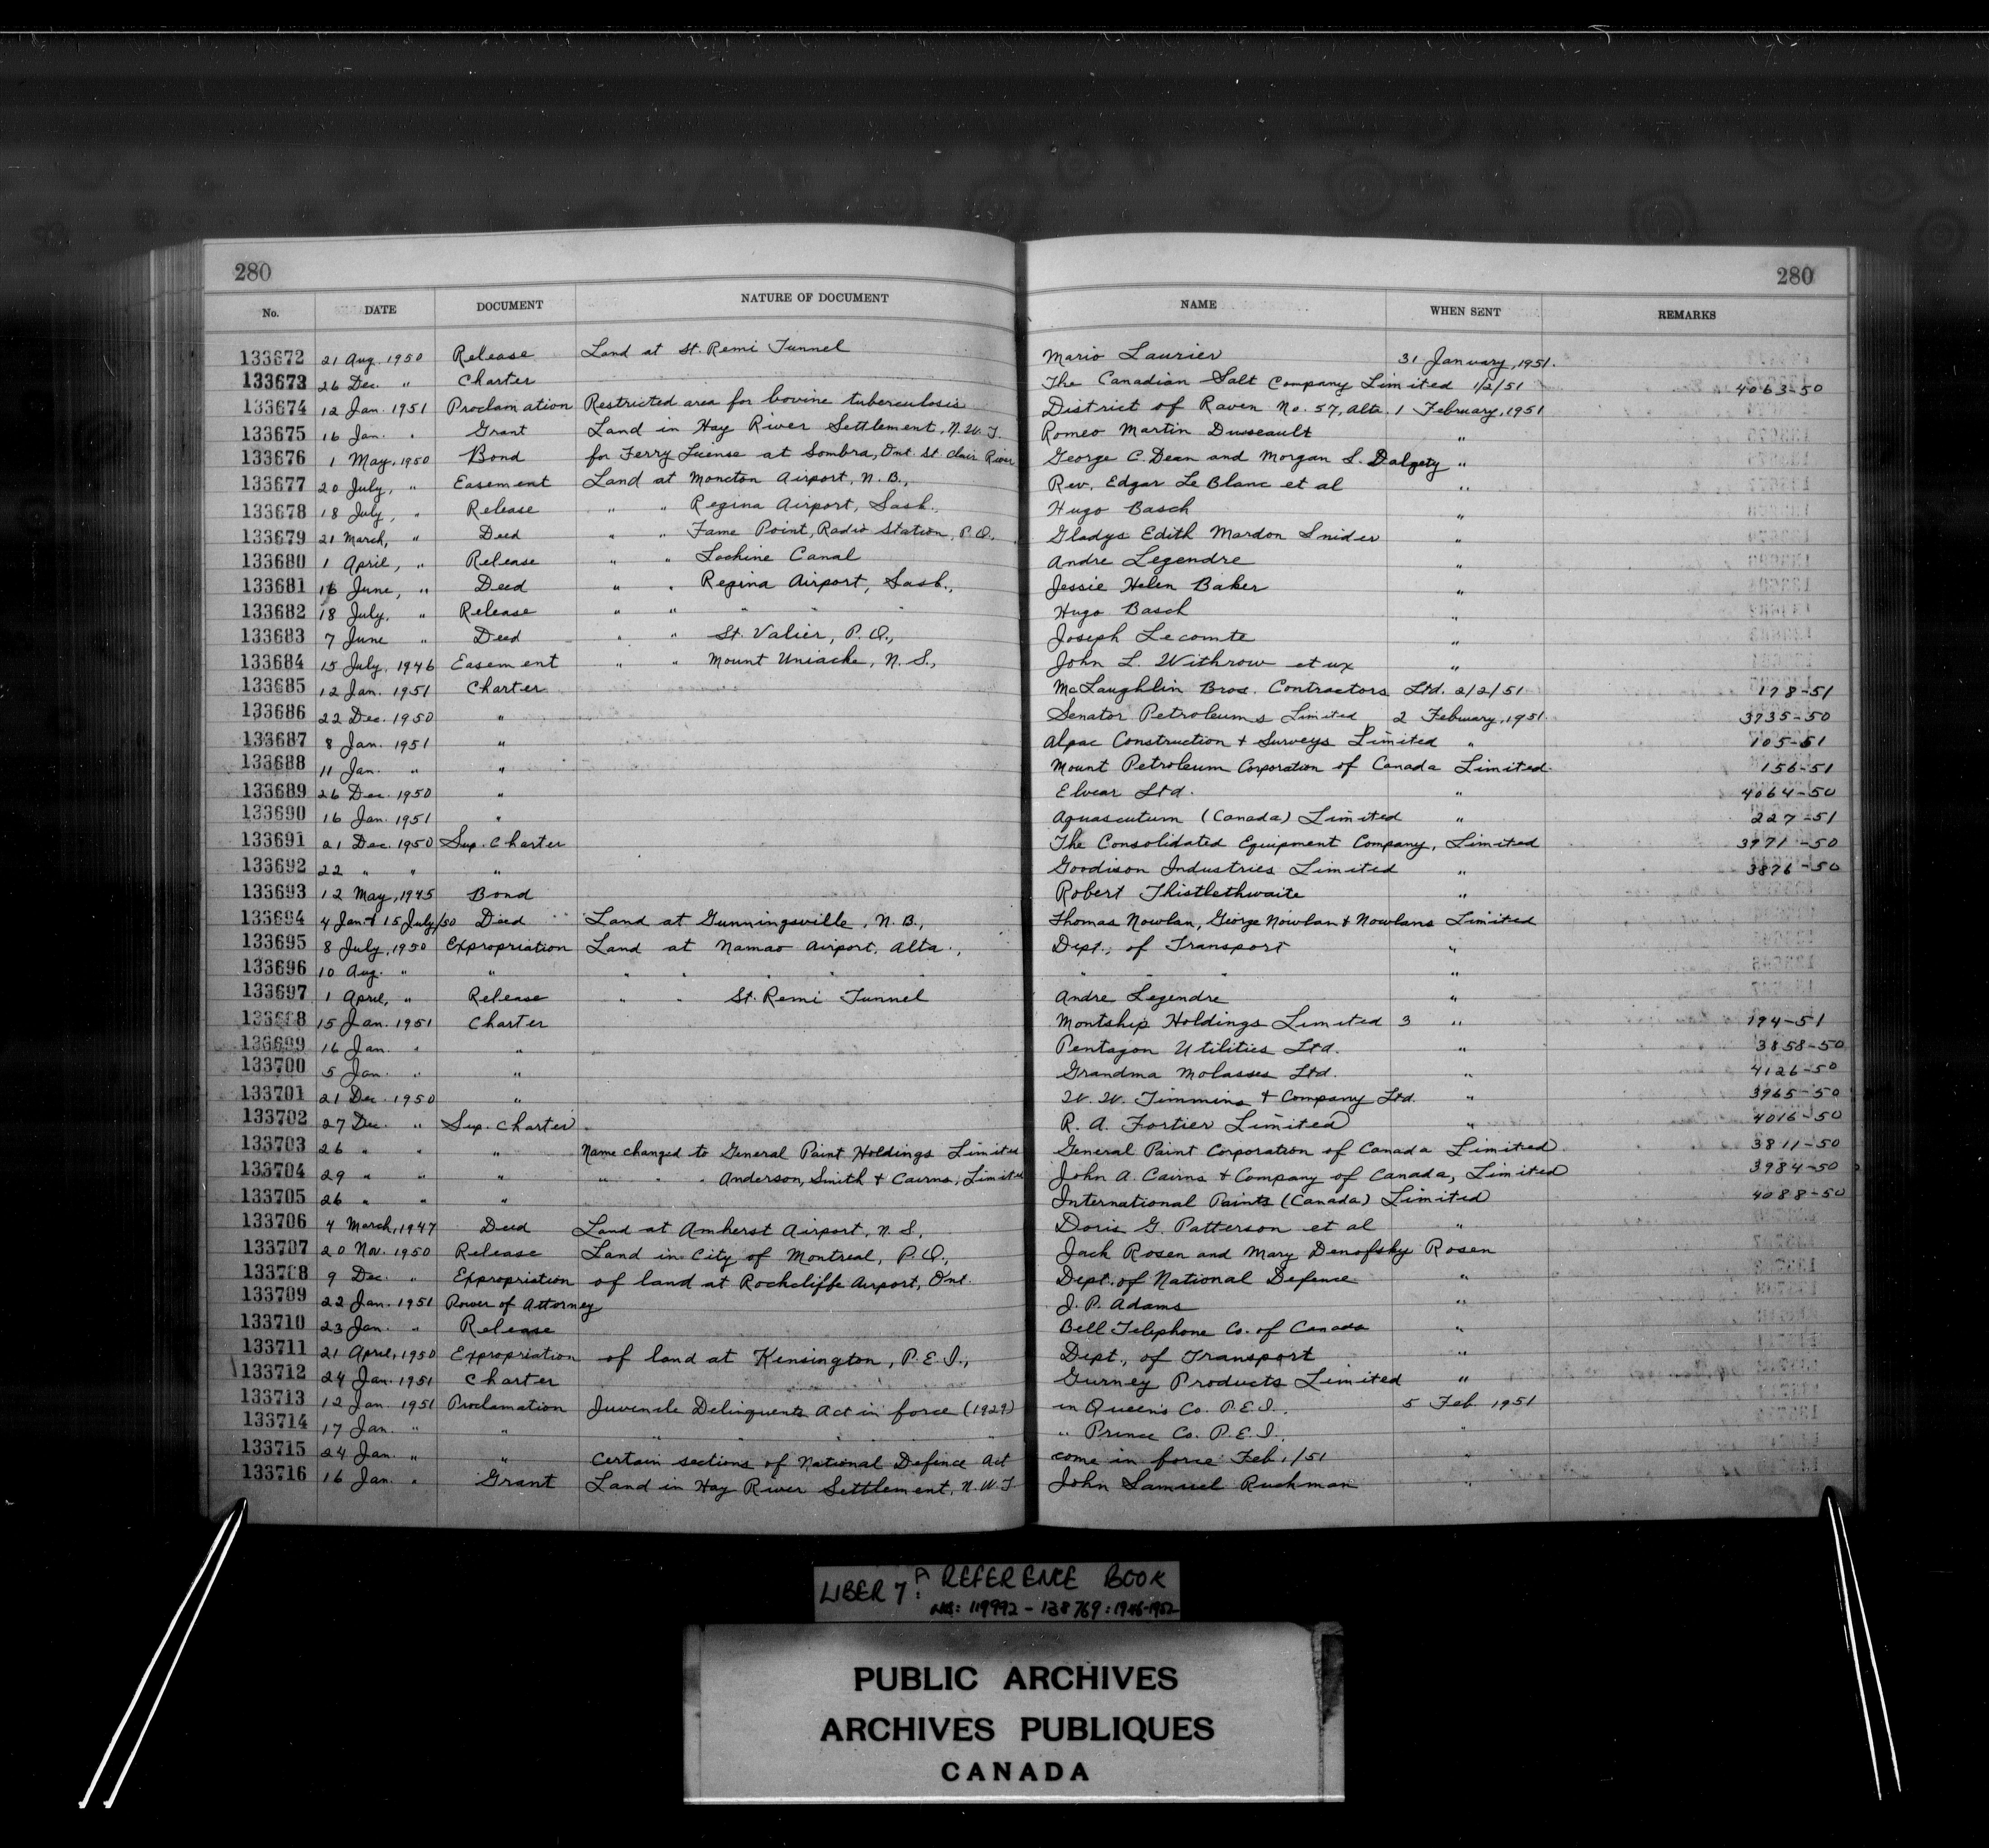 280 280
No. DATE DOCUMENT NATURE OF DOCUMENT NAME WHEN SENT REMARKS
133672 21 Aug. 1950 Release Land at St. Remi Tunnel Mario Laurier 31 January, 1951.
133673 26 Dec. " Charter The Canadian Salt Company Limited 1/2/51 4063-50
133674 12 Jan. 1951 Proclamation Restricted area for bovine tuberculosis District of Raven No. 57, Alta. 1 February, 1951
133675 16 Jan. " Grant Land in Hay River Settlement, N.W.T. Romeo Martin Dusseault "
133676 1 May, 1950 Bond for Ferry License at Sombra, Ont. St. Clair River George C. Dean and Morgan S. Dalgety "
133677 20 July, " Easement Land at Moncton Airport, N.B., Rev. Edgar Le Blanc et al "
133678 18 July, " Release " " Regina Airport, Sask., Hugo Basch "
133679 21 March, " Deed " " Fame Point, Radio Station, P.Q. Gladys Edith Mardon Snider "
133680 1 April, " Release " " Lachine Canal Andre Legendre "
133681 16 June, " Deed " " Regina Airport, Sask., Jessie Helen Baker "
133682 18 July, " Release " " " " " Hugo Basch "
133683 7 June " Deed " " St. Valier, P.Q., Joseph Lecomte "
133684 15 July, 1946 Easement " " Mount Uniacke, N.S., John L. Withrow et ux "
133685 12 Jan. 1951 Charter McLaughlin Bros. Contractors Ltd. 2/2/51 178-51
133686 22 Dec. 1950 " Senator Petroleums Limited 2 February, 1951. 3735-50
133687 8 Jan. 1951 " Alpac Construction + Surveys Limited " 105-51
133688 11 Jan. " " Mount Petroleum Corporation of Canada Limited. 156-51
133689 26 Dec. 1950 " Elvear Ltd. " 4064-50
133690 16 Jan. 1951 " Aquascutum (Canada) Limited " 227-51
133691 21 Dec. 1950 Sup. Charter The Consolidated Equipment Company, Limited 3971-50
133692 22 " " " Goodison Industries Limited " 3876-50
133693 12 May, 1945 Bond Robert Thistlethwaite "
133694 4 Jan. + 15 July/50 Deed Land at Gunningsville, N.B., Thomas Nowlan, George Nowlan + Nowlans Limited
133695 8 July, 1950 Expropriation Land at Namao Airport, Alta., Dept., of Transport "
133696 10 Aug. " " " " " " " " " " "
133697 1 April, " Release " " St. Remi Tunnel Andre Legendre "
133698 15 Jan. 1951 Charter Montship Holdings Limited 3 " 194-51
133699 16 Jan. " " Pentagon Utilities Ltd. " 3858-50
133700 5 Jan. " " Grandma Molasses Ltd. " 4126-50
133701 21 Dec. 1950 " W. W. Timmins + Company Ltd. " 3965-50
133702 27 Dec. " Sup. Charter R. A. Fortier Limited " 4016-50
133703 26 " " " Name changed to General Paint Holdings Limited General Paint Corporation of Canada Limited 3811-50
133704 29 " " " " " " Anderson, Smith + Cairns, Limited John A. Cairns + Company of Canada, Limited 3984-50
133705 26 " " " International Paints (Canada) Limited 4088-50
133706 4 March, 1947 Deed Land at Amherst Airport, N.S., Doris G. Patterson et al "
133707 20 Nov. 1950 Release Land in City of Montreal, P.Q., Jack Rosen and Mary Denofsky Rosen
133708 9 Dec. " Expropriation of land at Rockcliffe Airport, Ont. Dept. of National Defence "
133709 22 Jan. 1951 Power of Attorney J. P. Adams "
133710 23 Jan. " Release Bell Telephone Co. of Canada "
133711 21 April, 1950 Expropriation of land at Kensington, P.E.I., Dept., of Transport "
133712 24 Jan. 1951 Charter Gurney Products Limited "
133713 12 Jan. 1951 Proclamation Juvenile Delinquents Act in force (1929) in Queen's Co. P.E.I., 5 Feb. 1951
133714 17 Jan. " " " " " " " Prince Co. P.E.I., "
133715 24 Jan. " " Certain sections of National Defence Act come in force Feb. 1/51 "
133716 16 Jan. " Grant Land in Hay River Settlement, N.W.T. John Samuel Ruckman "
LIBER 7A: REFERENCE BOOK
NOS: 119992 - 138769: 1946-1952
PUBLIC ARCHIVES
ARCHIVES PUBLIQUES
CANADA